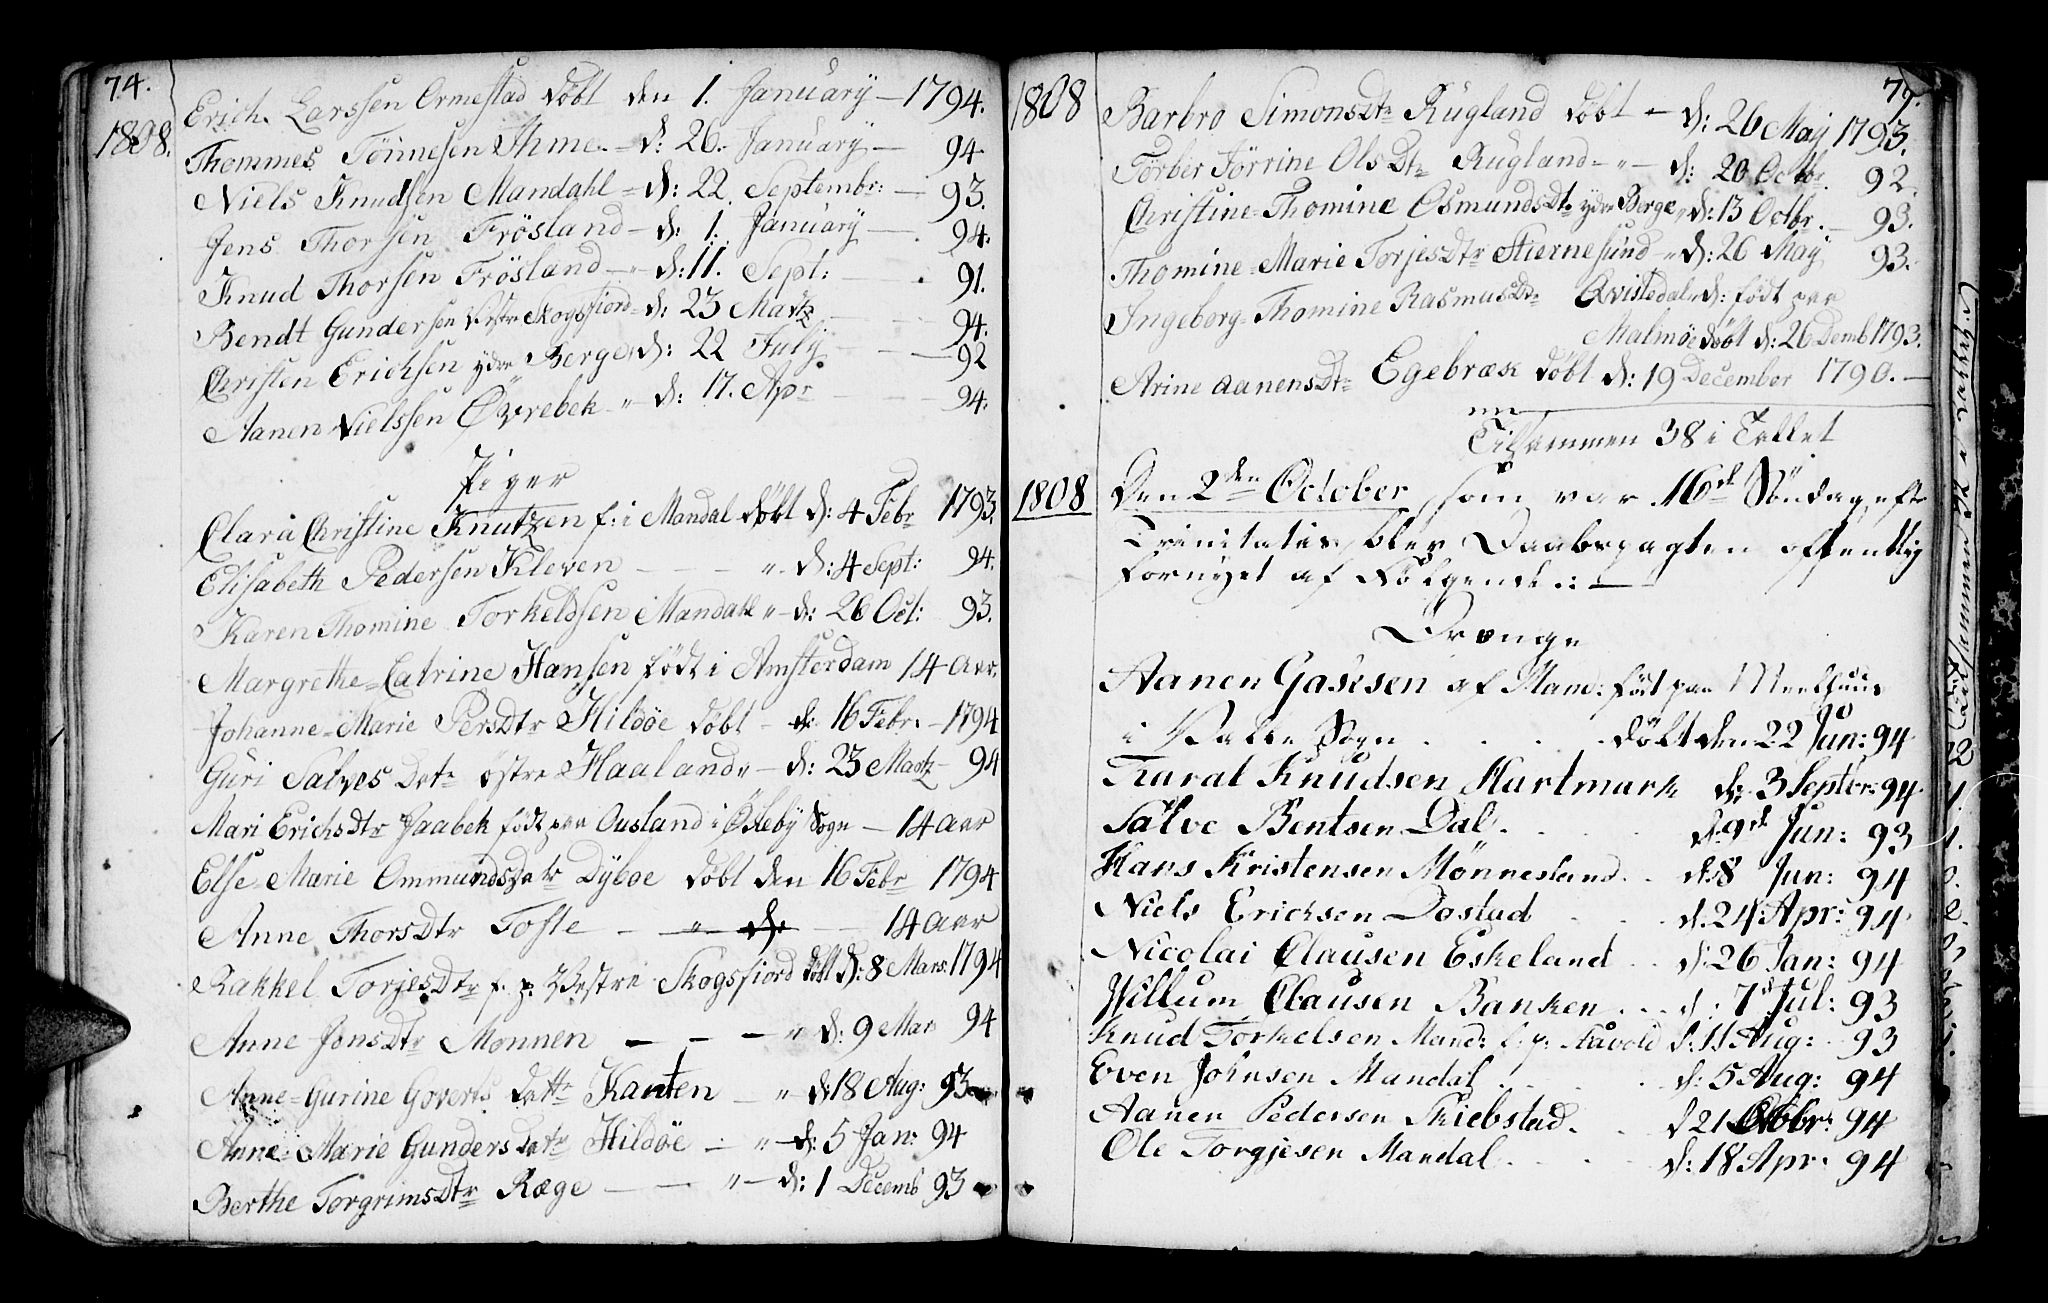 74.
1808.
Erich Larssen Ormestad Döbt den 1. Januarÿ — 1794.
Thommes Tönnesen Ihme — d: 26. Januarÿ — 94
Niels Knudsen Mandahl — d: 22. Septembr: — 93.
Jens Thorsen Frösland — d: 1. Januarÿ — 94.
Knud Thorsen Frösland — d: 11. Sept: — 91.
Bendt Gundersen Vestre Skogsfiord — d: 23 Martz — 94.
Christen Erichsen ydre Berge d: 22 July — 92
Aanen Nielssen Øvrebek — " — d: 17. Apr — 94.
Piger
Clara Christine Knutzen f: i Mandal döbt d: 4 Febr 1793.
Elisabeth Pedersen Kleven — " — d: 4 Sept: 94.
Karen Thomine Torkeldsen Mandahl " — d: 26 Oct: 93.
Margrethe-Catrine Hansen född i Amsterdam 14 Aar.
Johanne-Marie PersDtr Hildøe döbt — d: 16 Febr. — 1794
Guri Salves Datr østre Haaland " — d: 23 Martz — 94
Mari ErichsDtr Jaabek född paa Ousland i Öÿleby Sogn — 14 Aar
Else-Marie OmmundsDatr Dyboe döbt den 16 Febr 1794
Anne ThorsDtr Tofte — " — — 14 Aar
Rakkel TorjesDtr f. p. Vestre Skogsfiord döbt d: 8 Mars. 1794
Anne JonsDtr Monnen — — — " d: 9 Mar 94
Anne-Gurine Goverts Dattr Kanten — " d: 18 Aug: 93
Anne-Marie Gunders Datr Hildöe — " — d: 5 Jan: 94
Berthe TorgrimsDtr Ræge — — " — d: 1 Decemb 93
75.
1808
Barbro SimonsDtr Rugland döbt — d: 26 May 1793.
Torber Jörrine OlsDtr Rugland — " — d: 20 Octbr. 92.
Christine-Thomine OsmundsDtr ydre Berge, d: 13 Octbr. — 93.
Thomine-Marie TorjesDtr Stiernesund — " d: 26 May 93.
Ingeborg-Thomine RasmusDtr Qvistedal född paa
Malmøe döbt d: 26 Decemb 1793.
Arine AanensDtr Egebræk döbt d: 19 December 1790. —
Tilsammen 38 i Tallet
1808
Den 2den October, som var 16de Söndag efter
Trinitatis, blev Daabspagten offentlig
fornyet af Følgende.: —
Drenge
Aanen Gasesen af Mand: född paa Meelhuus
i Halse Sogn . . . . döbt den 22 Jun: 94
Tarat Knudsen Hartmark d: 3 Septbr: 94.
Salve Bentsen Dal. . . . d: 9de Jun: 93
Hans Kristensen Mönnesland . . d: 8 Jun: 94
Niels Erichsen Dostad . . . d: 24 Apr: 94.
Nicolai Clausen Eskeland . . d: 26 Jan: 94
Willum Clausen Banken . . . d: 7d Jul: 93
Knud Torkelsen Mand: f. p. d: 11 Aug: 93
Even Johnsen Mandal . . . . d: 5 Aug: 94
Aanen Pedersen Skiebstad. . . d 21 Octobr: 94
Ole Torgjesen Mandal . . . . d: 18 Apr: 94